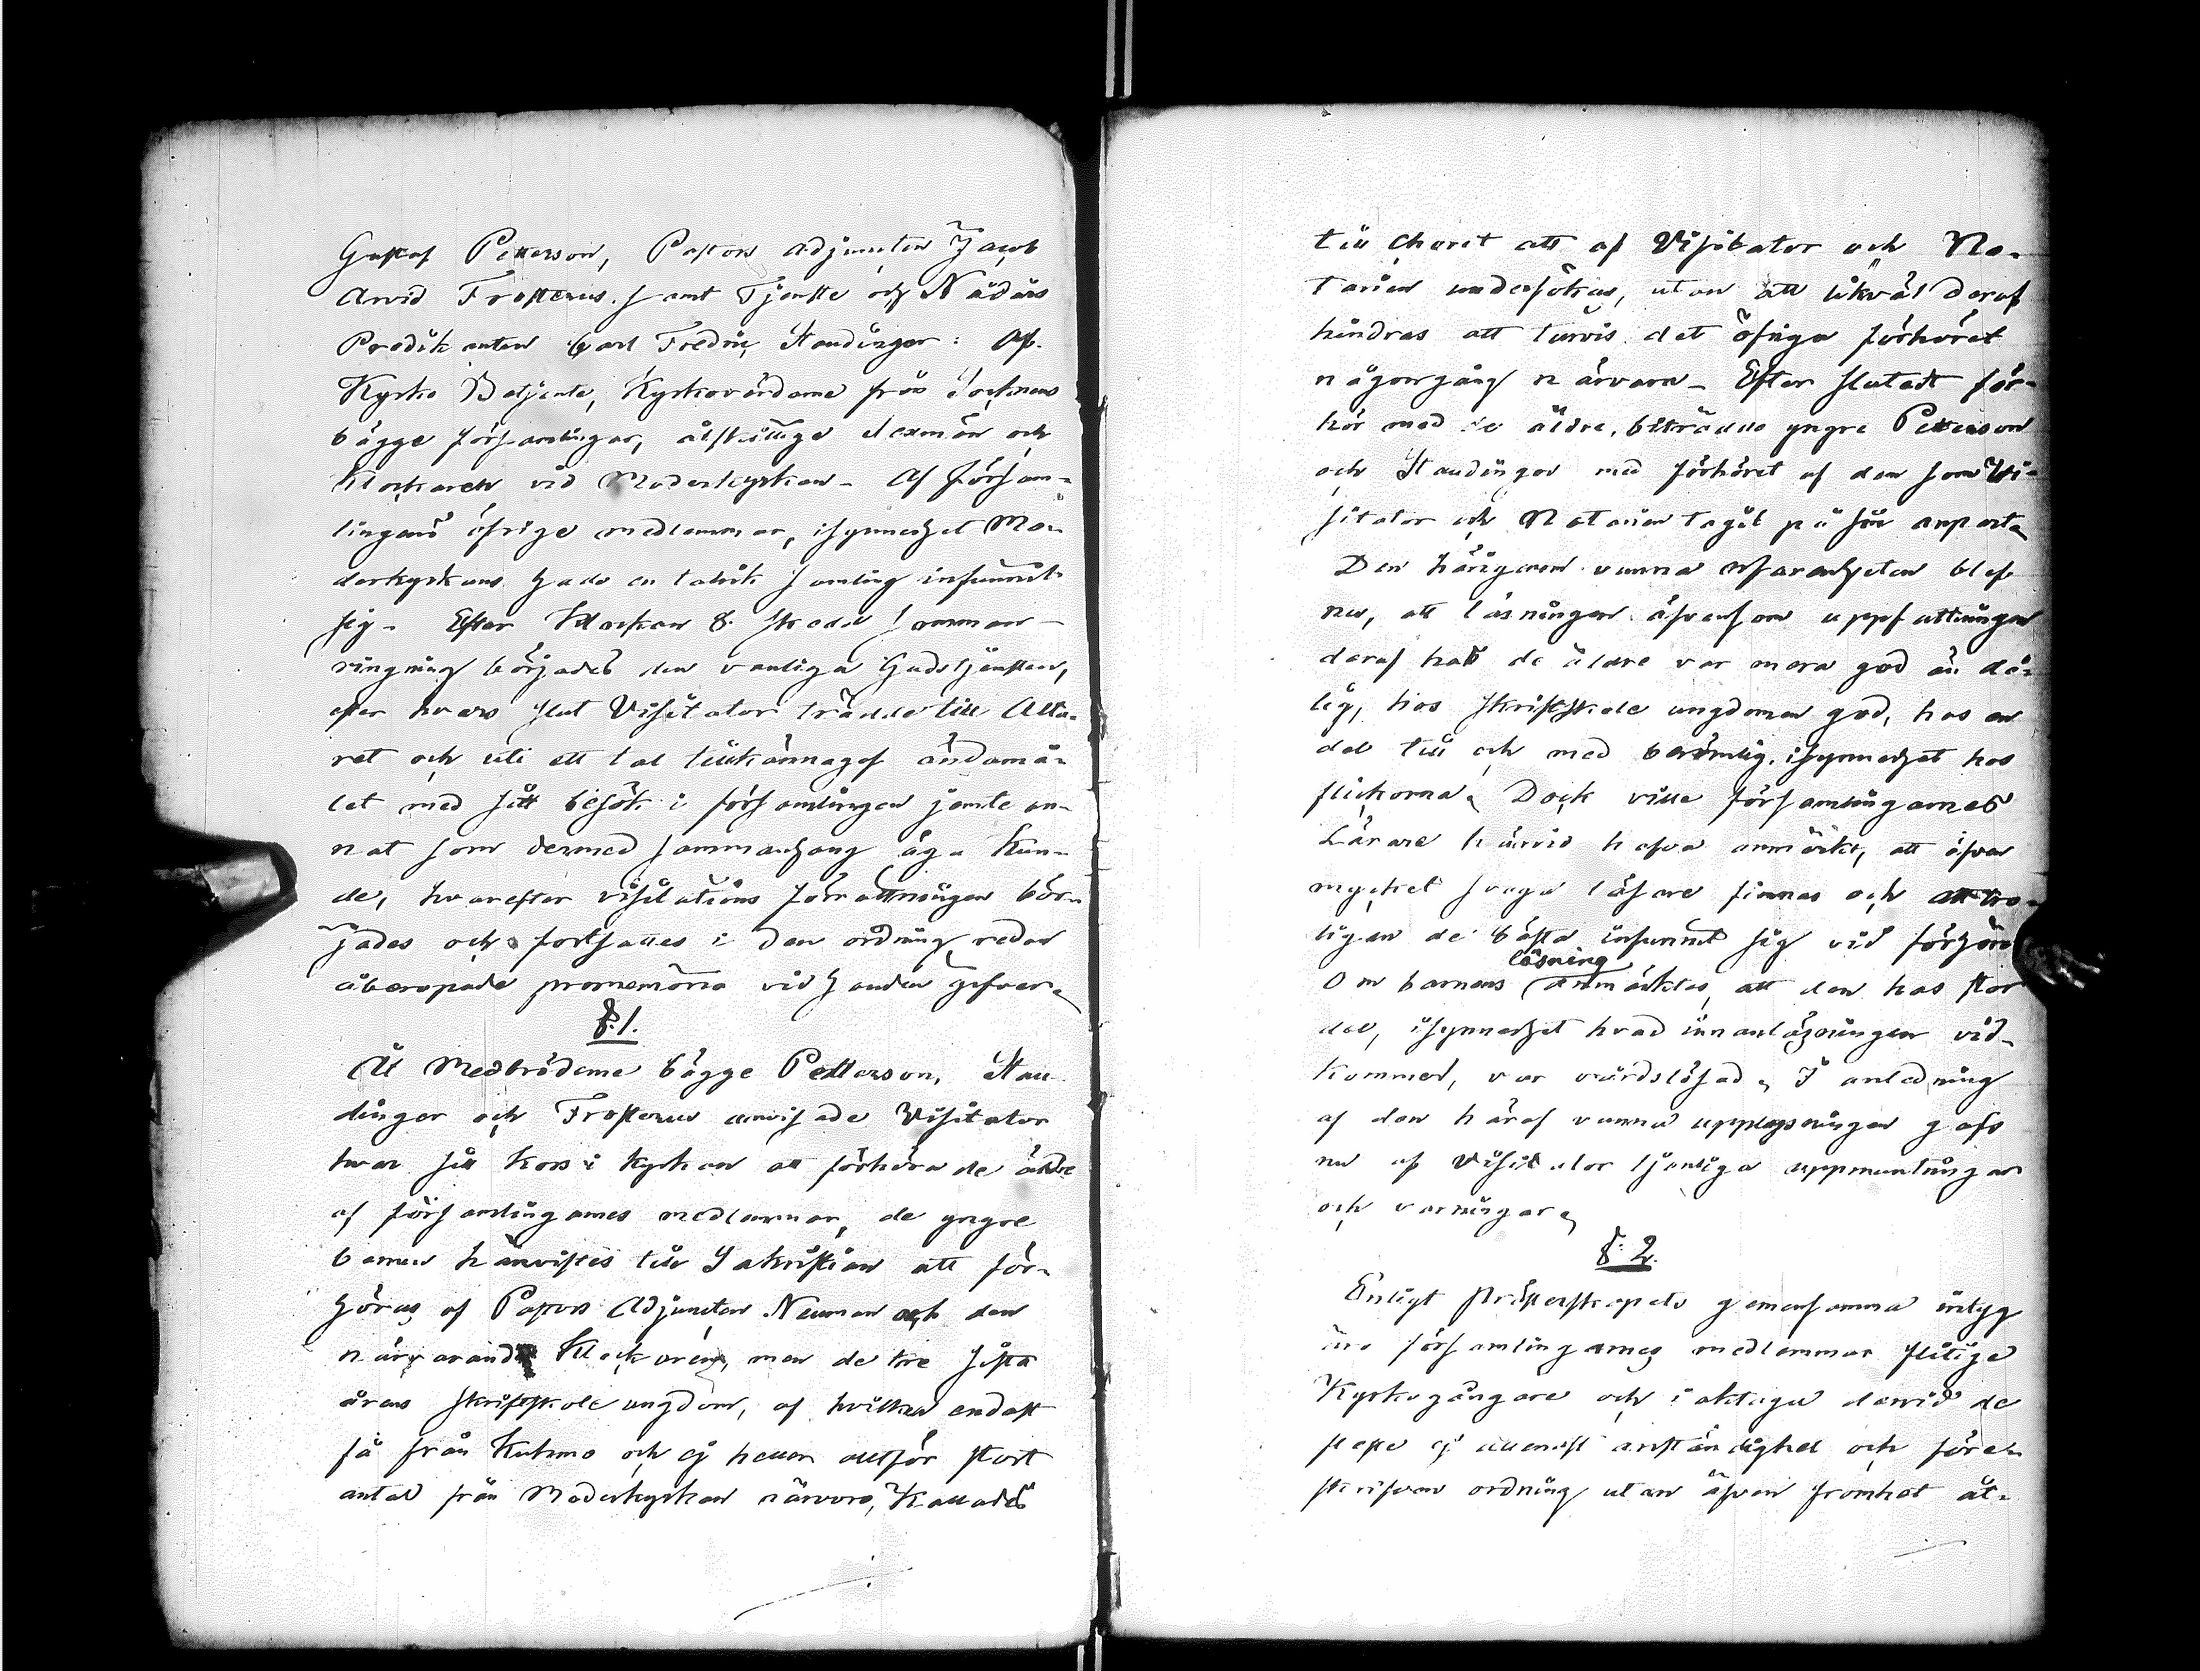 Gustaf Petterson, Pastors adjuncten Jacob
Arvid Frosterus samt Tjenste och Nådårs
Predikanten Carl Fredric Staudinger: Af
Kyrko Betjente, Kyrkovärdarne från Socknens
bägge församlingar, åtskillige Sexmän och
Klockaren vid Moderkyrkan. Af försam-
lingens öfrige medlemmar, isynnerhet Mo-
derkyrkans hade en talrik samling infunnit
sig. Efter Klockan 8. skedd samman-
ringning börjades den vanliga Gudstjensten,
efter hvars slut Visitator trädde till Alta-
ret och uti ett tal tillkännagaf ändamå-
let med sitt besök i församlingen jemte an-
nat som dermed sammanhang äga kun-
de, hvarefter visitations förrättningen bör-
jades och fortsattes i den ordning redan
åberopade promemoria vid handen gifver.
§. 1.
Åt Medbröderne bägge Petterson, Stau-
dinger och Frosterus anvisade Visitator
hvar sitt Kors i kyrkan att förhöra de äldre
af församlingarnes medlemmar, de yngre
barnen hänvistes till Sakristian att för-
höras af Pastors Adjuncten Neuman och den
närvarande Klockaren, men de tre sista
årens skriftskole ungdom, af hvilken endast
få från Kuhmo och ej heller alltför stort
antal från Moderkyrkan närvoro, Kallades
till Choret att af Visitator och No-
tarien undersökas, utan att likväl deraf
hindras att turvis det öfriga förhöret
någongång närvara. Efter slutadt för-
hör med de äldre, biträdde yngre Petterson
och Staudinger med förhöret af dem som Vi-
sitator och Notarien tagit på sin anpart.
Den härigenom vunna erfarenheten blef
nu, att läsningen äfvensom uppfattningen
deraf hos de äldre var mera god än då-
lig, hos skriftskole ungdomen god, hos en
del till och med berömlig, isynnerhet hos
flickorna. Dock ville församlingarnes
Lärare härvid hafva anmärkt, att äfven
mycket svaga läsare finnas och att tro-
ligen de bästa infunnit sig vid förhöret
läsning
Om barnens anmärktes, att den hos stor
del, isynnerhet hvad innanläsningen vid-
kommer, var vårdslösad. I anledning
af den häraf vunna upplysningen gafs
nu af Visitator tjenliga uppmuntringar
och varningar.
§. 2.
Enligt Presterskapets gemensamma intyg
äro församlingarnes medlemmar flitige
Kyrkogångare och iakttaga dervid de
fleste ej allenast anständighet och före-
skrifven ordning utan äfven fromhet åt-